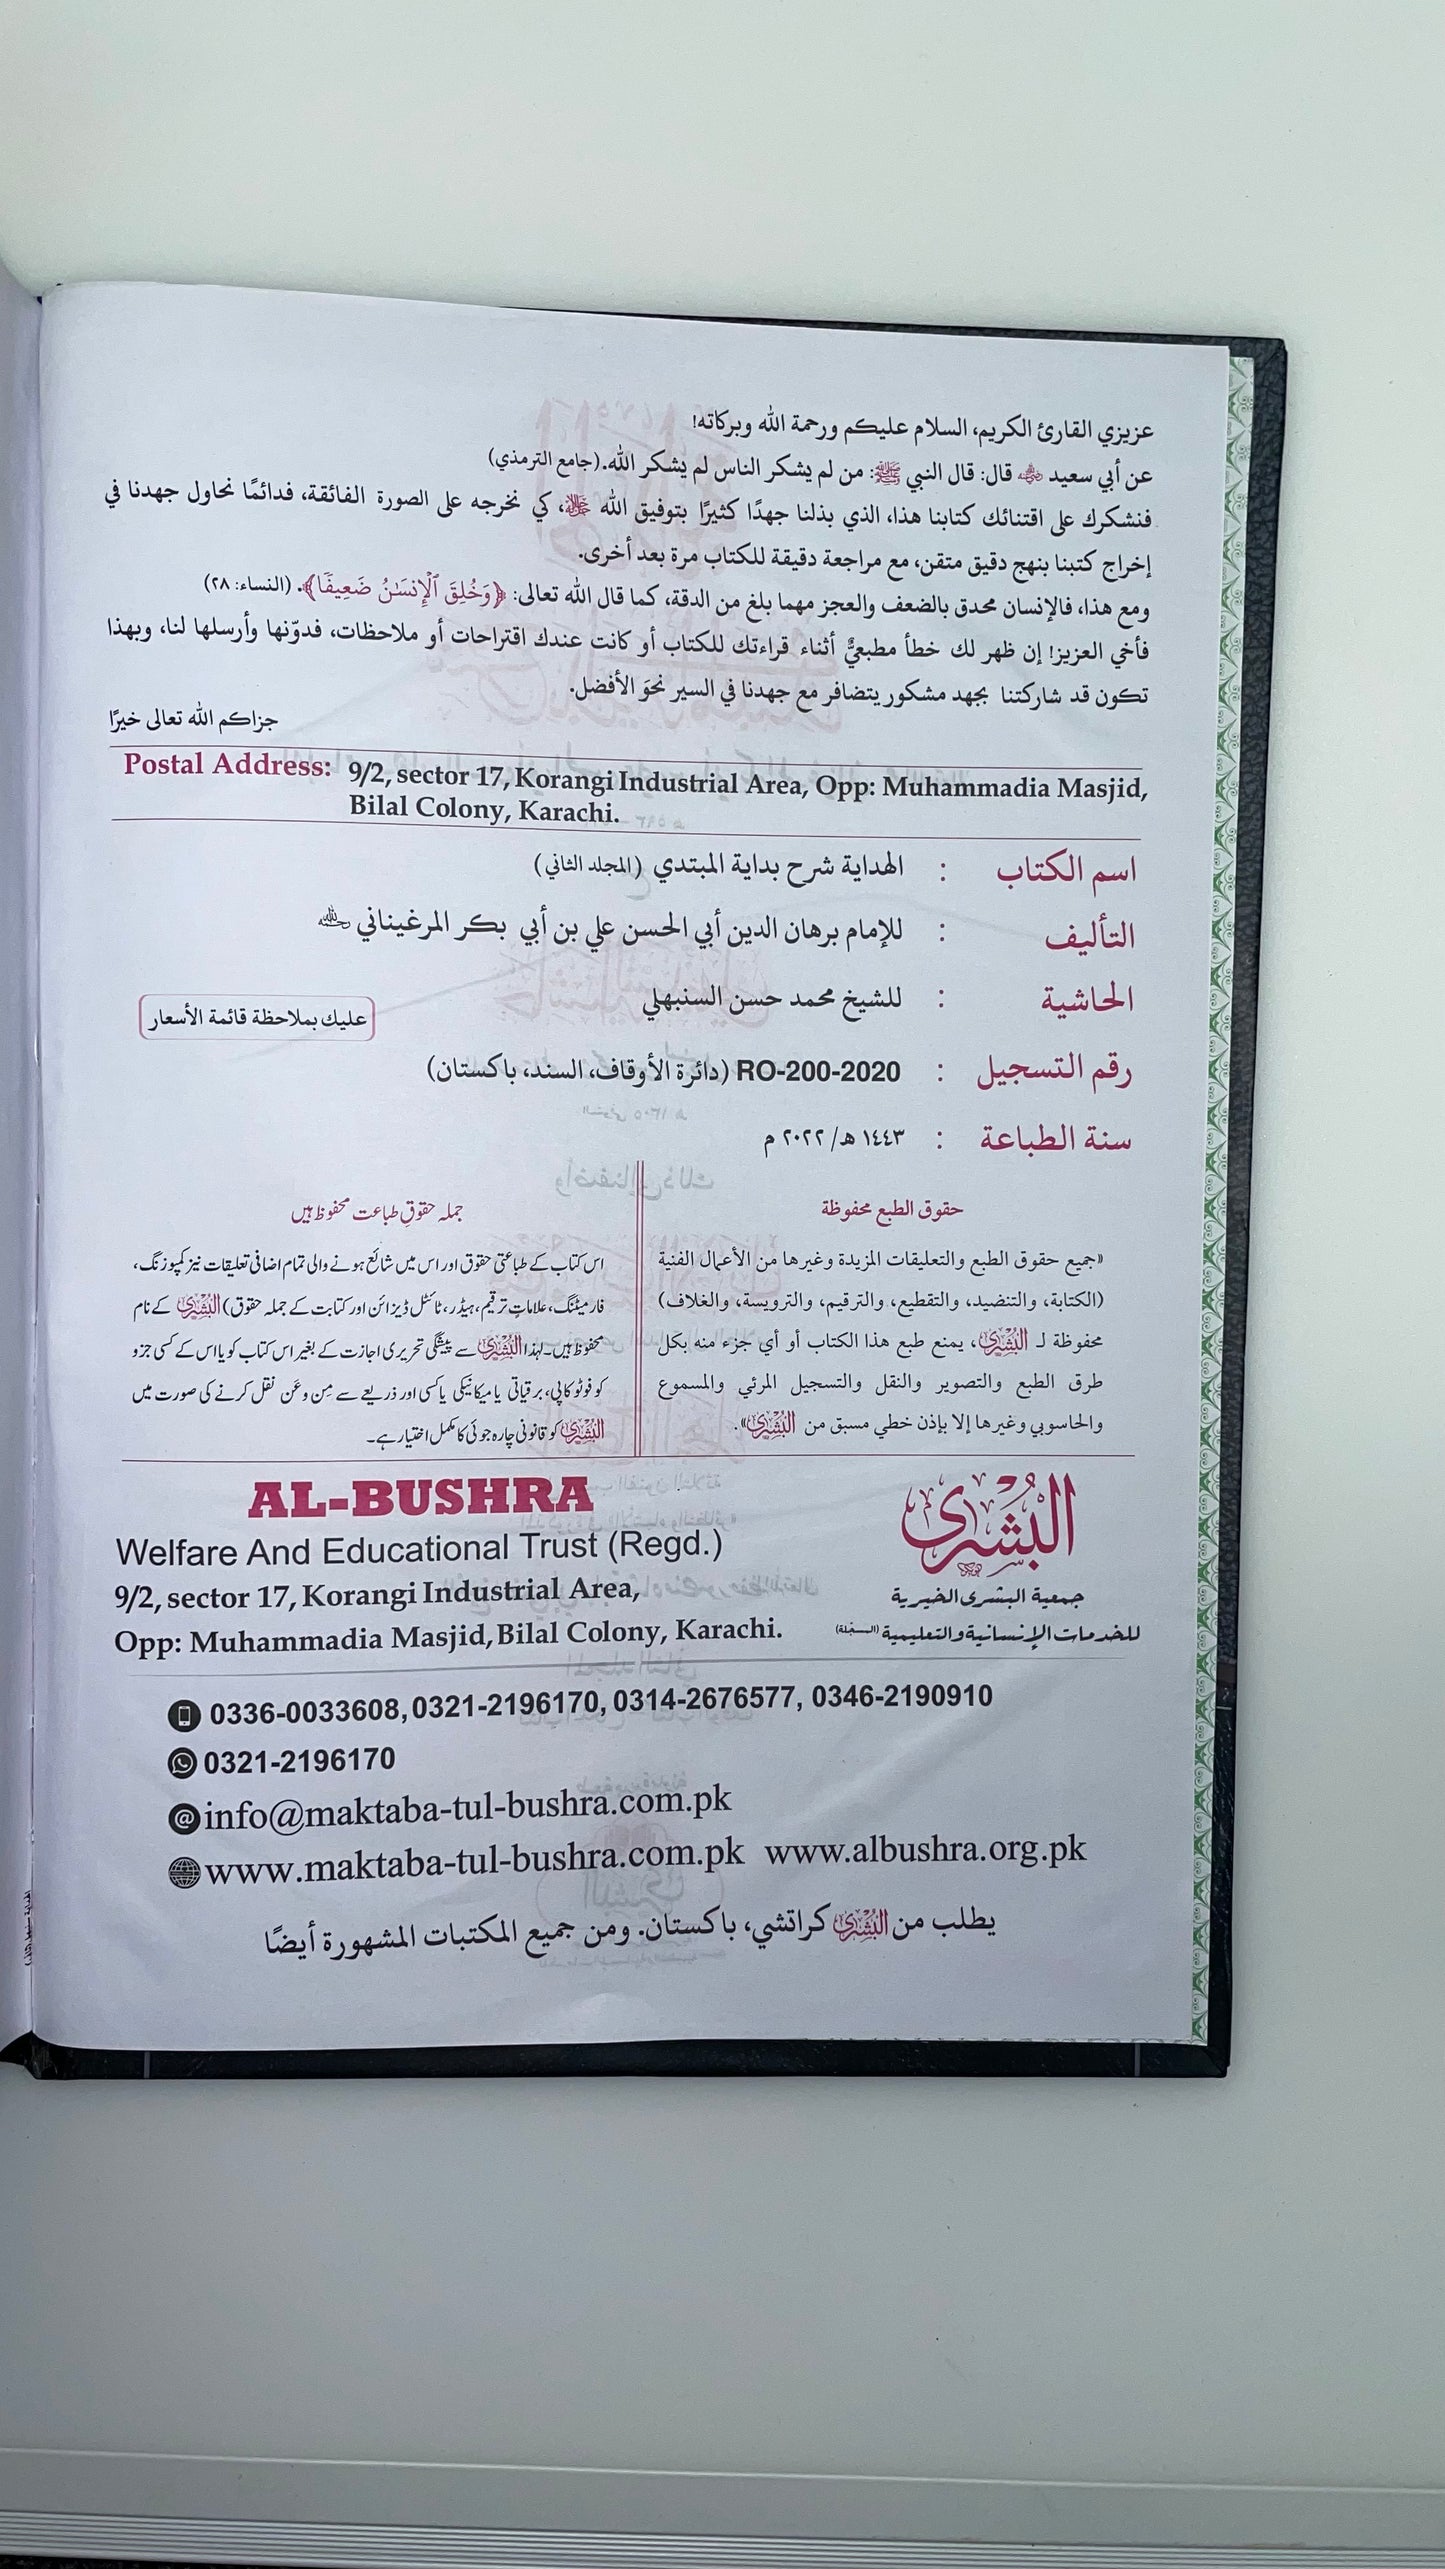 عزيزي القارئ الكريم، السلام عليكم ورحمة الله وبركاته!
عن أبي سعيد رضي الله عنه قال: قال النبي ﷺ: من لم يشكر الناس لم يشكر الله. (جامع الترمذي)
فنشكرك على اقتنائك كتابنا هذا، الذي بذلنا جهدًا كثيرًا بتوفيق الله ﷻ، كي نخرجه على الصورة الفائقة، فدائمًا نحاول جهدنا في
إخراج كتبنا بنهج دقيق متقن، مع مراجعة دقيقة للكتاب مرة بعد أخرى.
ومع هذا، فالإنسان محدق بالضعف والعجز مهما بلغ من الدقة، كما قال الله تعالى: ﴿وَخُلِقَ ٱلْإِنسَـٰنُ ضَعِيفًا﴾. (النساء: ٢٨)
فأخي العزيز! إن ظهر لك خطأ مطبعيٌّ أثناء قراءتك للكتاب أو كانت عندك اقتراحات أو ملاحظات، فدوّنها وأرسلها لنا، وبهذا
تكون قد شاركتنا بجهد مشكور يتضافر مع جهدنا في السير نحوَ الأفضل.
جزاكم الله تعالى خيرًا
Postal Address: 9/2, sector 17, Korangi Industrial Area, Opp: Muhammadia Masjid,
Bilal Colony, Karachi.
اسم الكتاب : الهداية شرح بداية المبتدي (المجلد الثاني)
التأليف : للإمام برهان الدين أبي الحسن علي بن أبي بكر المرغيناني رحمه الله
الحاشية : للشيخ محمد حسن السنبهلي
عليك بملاحظة قائمة الأسعار
رقم التسجيل : RO-200-2020 (دائرة الأوقاف، السند، باكستان)
سنة الطباعة : ١٤٤٣ هـ/ ٢٠٢٢ م
حقوق الطبع محفوظة
«جميع حقوق الطبع والتعليقات المزيدة وغيرها من الأعمال الفنية
(الكتابة، والتنضيد، والتقطيع، والترقيم، والترويسة، والغلاف)
محفوظة لـ البُشْرٰى، يمنع طبع هذا الكتاب أو أي جزء منه بكل
طرق الطبع والتصوير والنقل والتسجيل المرئي والمسموع
والحاسوبي وغيرها إلا بإذن خطي مسبق من البُشْرٰى».
جملہ حقوقِ طباعت محفوظ ہیں
اس کتاب کے طباعتی حقوق اور اس میں شائع ہونے والی تمام اضافی تعلیقات نیز کمپوزنگ،
فارمیٹنگ، علاماتِ ترقیم، ہیڈر، ٹائٹل ڈیزائن اور کتابت کے جملہ حقوق) البُشْرٰى کے نام
محفوظ ہیں۔ لہٰذا البُشْرٰى سے پیشگی تحریری اجازت کے بغیر اس کتاب کو یا اس کے کسی جزو
کو فوٹو کاپی، برقیاتی یا میکانیکی یا کسی اور ذریعے سے مِن وعَن نقل کرنے کی صورت میں
البُشْرٰى کو قانونی چارہ جوئی کا مکمل اختیار ہے۔
AL-BUSHRA
Welfare And Educational Trust (Regd.)
9/2, sector 17, Korangi Industrial Area,
Opp: Muhammadia Masjid, Bilal Colony, Karachi.
البُشْرٰى
جمعية البشرى الخيرية
للخدمات الإنسانية والتعليمية (المسجّلة)
0336-0033608, 0321-2196170, 0314-2676577, 0346-2190910
0321-2196170
info@maktaba-tul-bushra.com.pk
www.maktaba-tul-bushra.com.pk www.albushra.org.pk
يطلب من البُشْرٰى كراتشي، باكستان. ومن جميع المكتبات المشهورة أيضًا